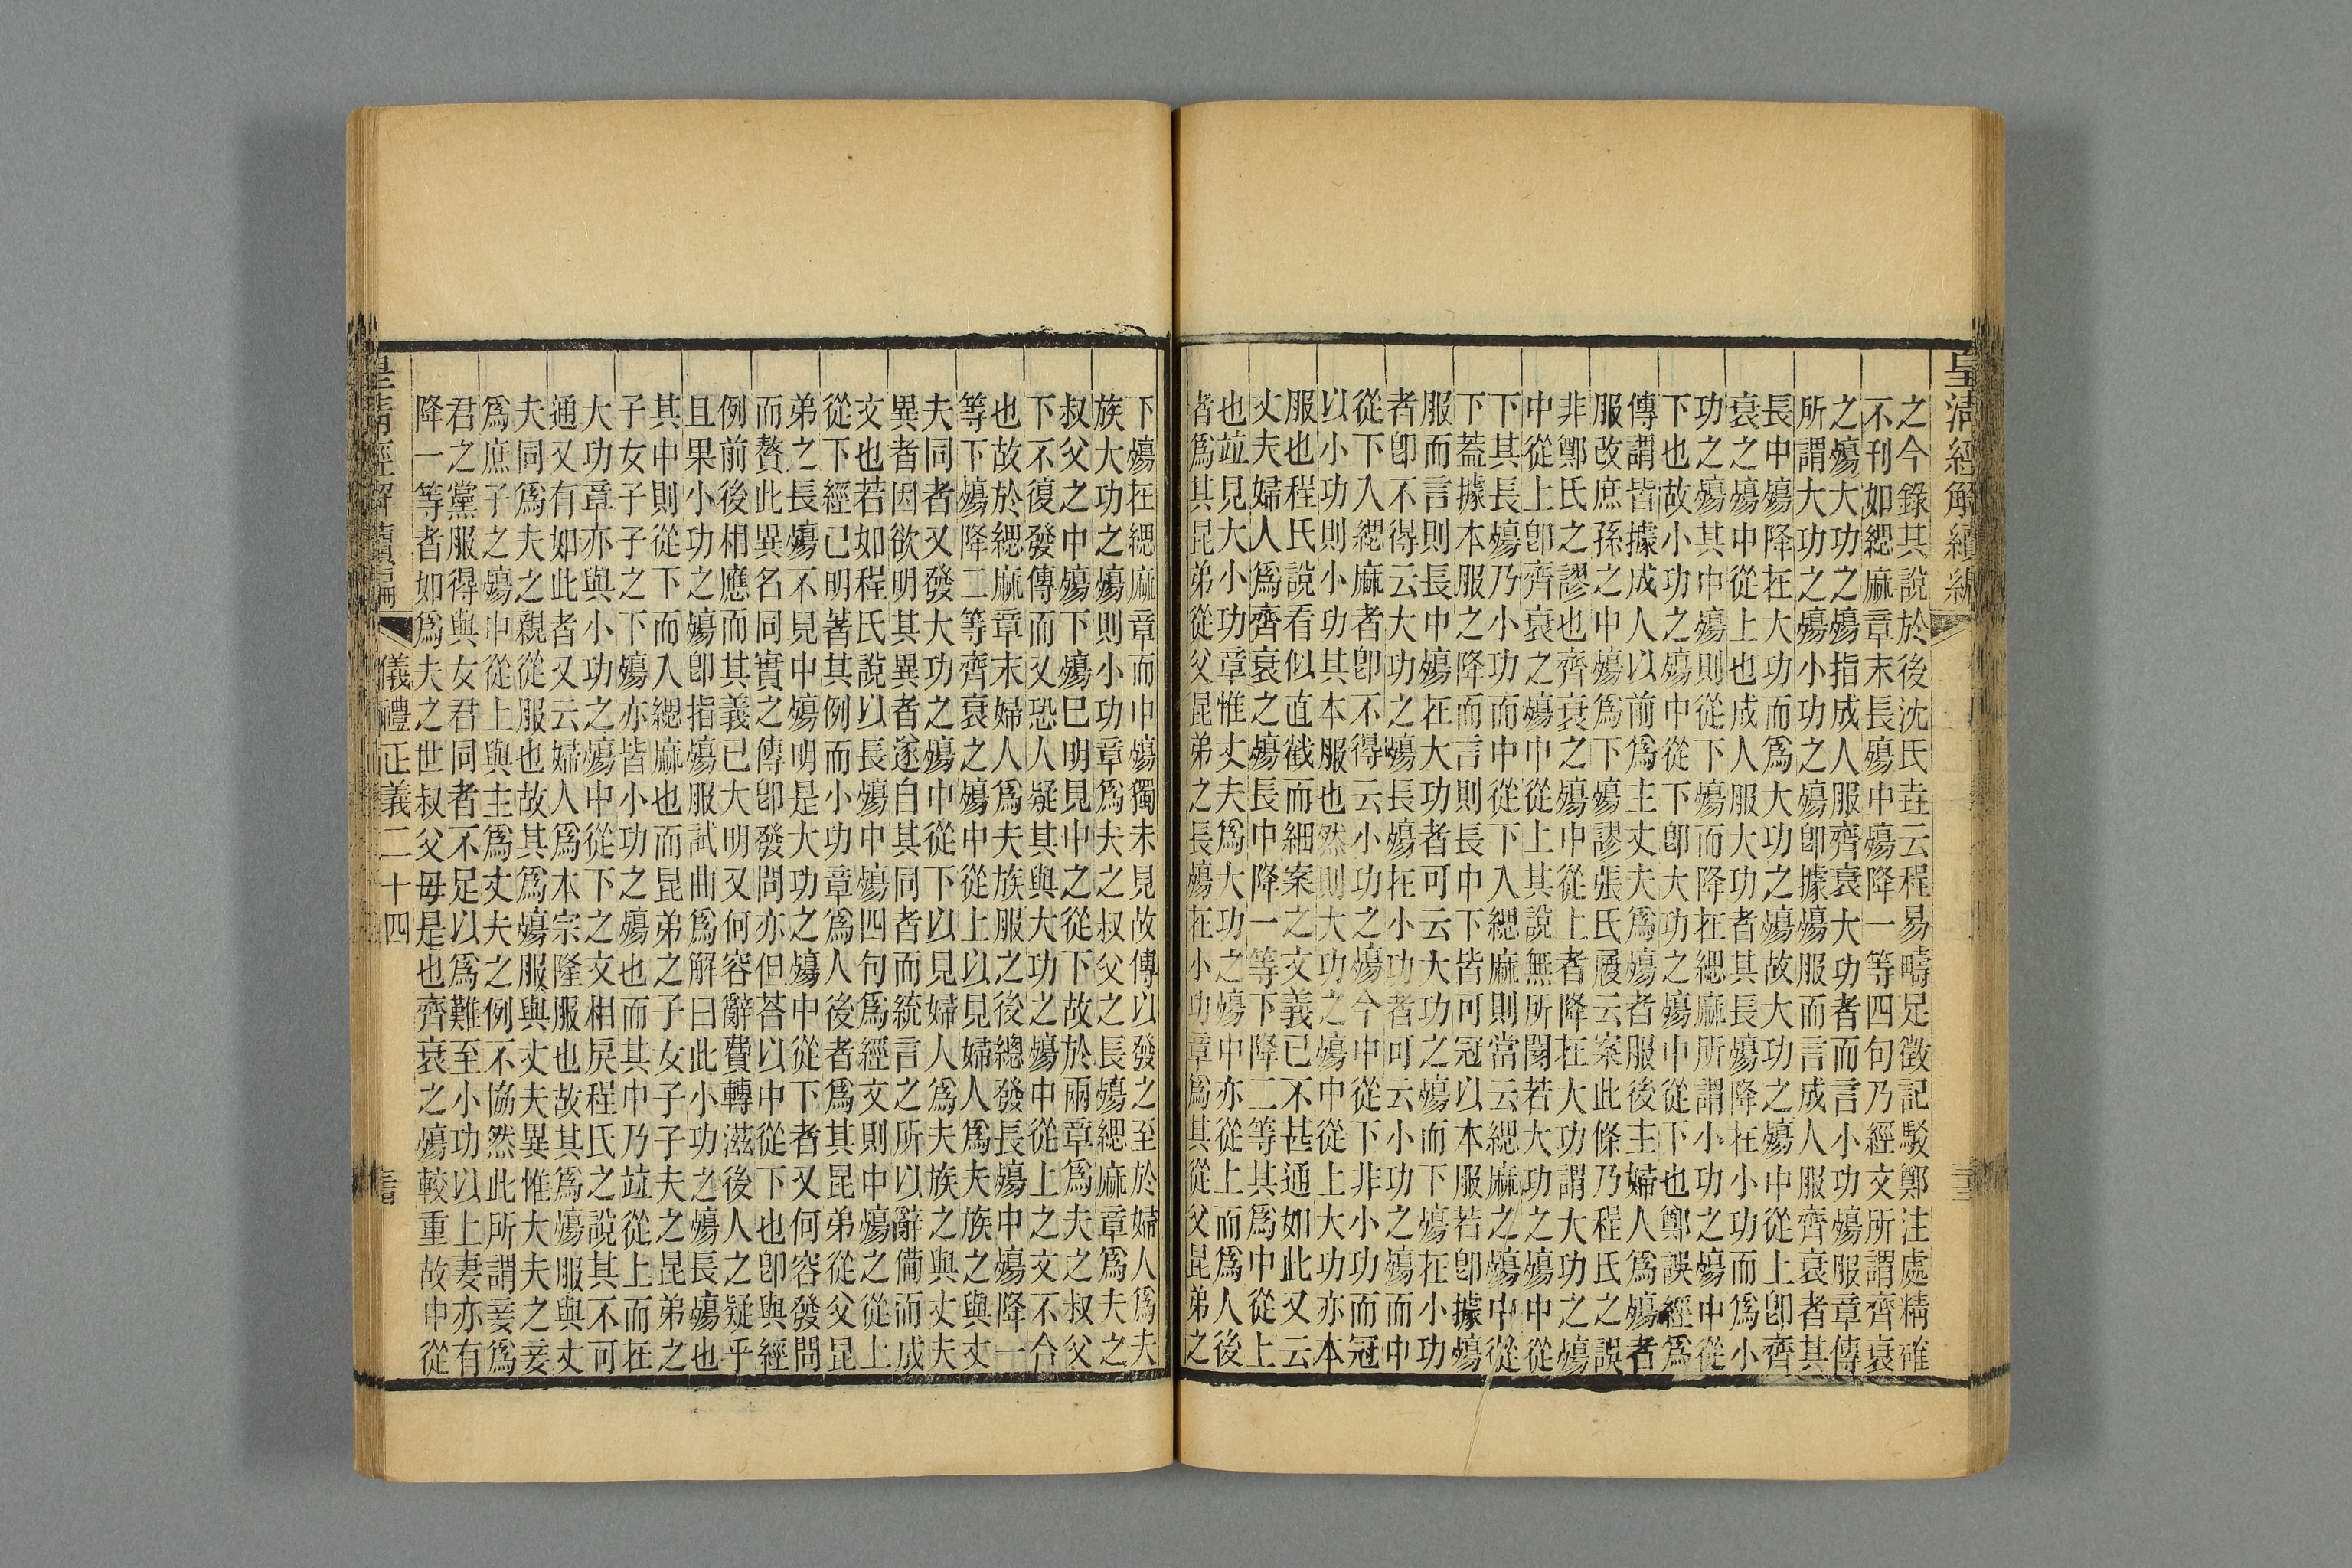 皇清經解續編
之今錄其說於後沈氏垚云程易疇足徵記駁鄭注處精確
不刊如緦麻章末長殤中殤降一等四句乃經文所謂齊衰
之殤大功之殤指成人服齊衰大功者而言小功殤服章傳
所謂大功之殤小功之殤卽據殤服而言成人服齊衰者其
長中殤降在大功而爲大功之殤故大功之殤中從上卽齊
衰之殤中從上也成人服大功者其長殤降在小功而爲小
功之殤其中殤則從下殤而降在緦麻所謂小功之殤中從
下也故小功之殤中從下卽大功之殤中從下也鄭誤經爲
傳謂皆據成人以前爲主丈夫爲殤者服後主婦人爲殤者
服改庶孫之中殤爲下殤謬張氏履云案此條乃程氏之誤
非鄭氏之謬也齊衰之殤中從上者降在大功謂大功之殤
中從上卽齊衰之殤中從上其說無所闋若大功之殤中從
下其長殤乃小功而中從下入緦麻則當云緦麻之殤中從
下蓋據本服之降而言則長中下皆可冠以本服若卽據殤
服而言則長中殤在大功者可云大功之殤而下殤在小功
者卽不得云大功之殤長殤在小功者可云小功之殤而中
從下入緦麻者卽不得云小功之殤今中從下非小功而冠
以小功則小功其本服也然則大功之殤中從上大功亦本
服也程氏說看似直截而細案之文義已不甚通如此又云
丈夫婦人爲齊衰之殤長中降一等下降二等其爲中從上
也竝見大小功章惟丈夫爲大功之殤中亦從上而爲人後
者爲其昆弟從父昆弟之長殤在小功章爲其從父昆弟之
下殤在緦麻章而中殤獨未見故傳以發之至於婦人爲夫
族大功之殤則小功章爲夫之叔父之長殤緦麻章爲夫之
叔父之中殤下殤巳明見中之從下故於兩章爲夫之叔父
下不復發傳而又恐人疑其與大功之殤中從上之文不合
也故於緦麻章末婦人爲夫族服之後總發長殤中殤降一
等下殤降二等齊衰之殤中從上以見婦人爲夫族之與丈
夫同者又發大功之殤中從下以見婦人爲夫族之與丈夫
異者因欲明其異者遂白其同者而統言之所以辭備而成
文也若如程氏說以長殤中殤四句爲經文則中殤之從上
從下經已明著其例而小功章爲人後者爲其昆弟從父昆
弟之長殤不見中殤明是大功之殤中從下者又何容發問
而贅此異名同實之傳卽發問亦但荅以中從下也卽與經
例前後相應而其義已大明又何容辭費轉滋後人之疑乎
且果小功之殤卽指殤服試曲爲解曰此小功之殤長殤也
其中則從下而入緦麻也而昆弟之子女子子夫之昆弟之
子女子子之下殤亦皆小功之殤也而其中乃竝從上而在
大功章亦與小功之殤中從下之文相戾程氏之說其不可
通又有如此者又云婦人爲本宗降服也故其爲殤服與丈
夫同爲夫之親從服也故其爲殤服與丈夫異惟大夫之妾
爲庶子之殤中從上與主爲丈夫之例不協然此所謂妾爲
君之黨服得與女君同者不足以爲難至小功以上妻亦有
降一等者如爲夫之世叔父母是也齊衰之殤較重故中從
皇清經解續編
儀禮正義二十四